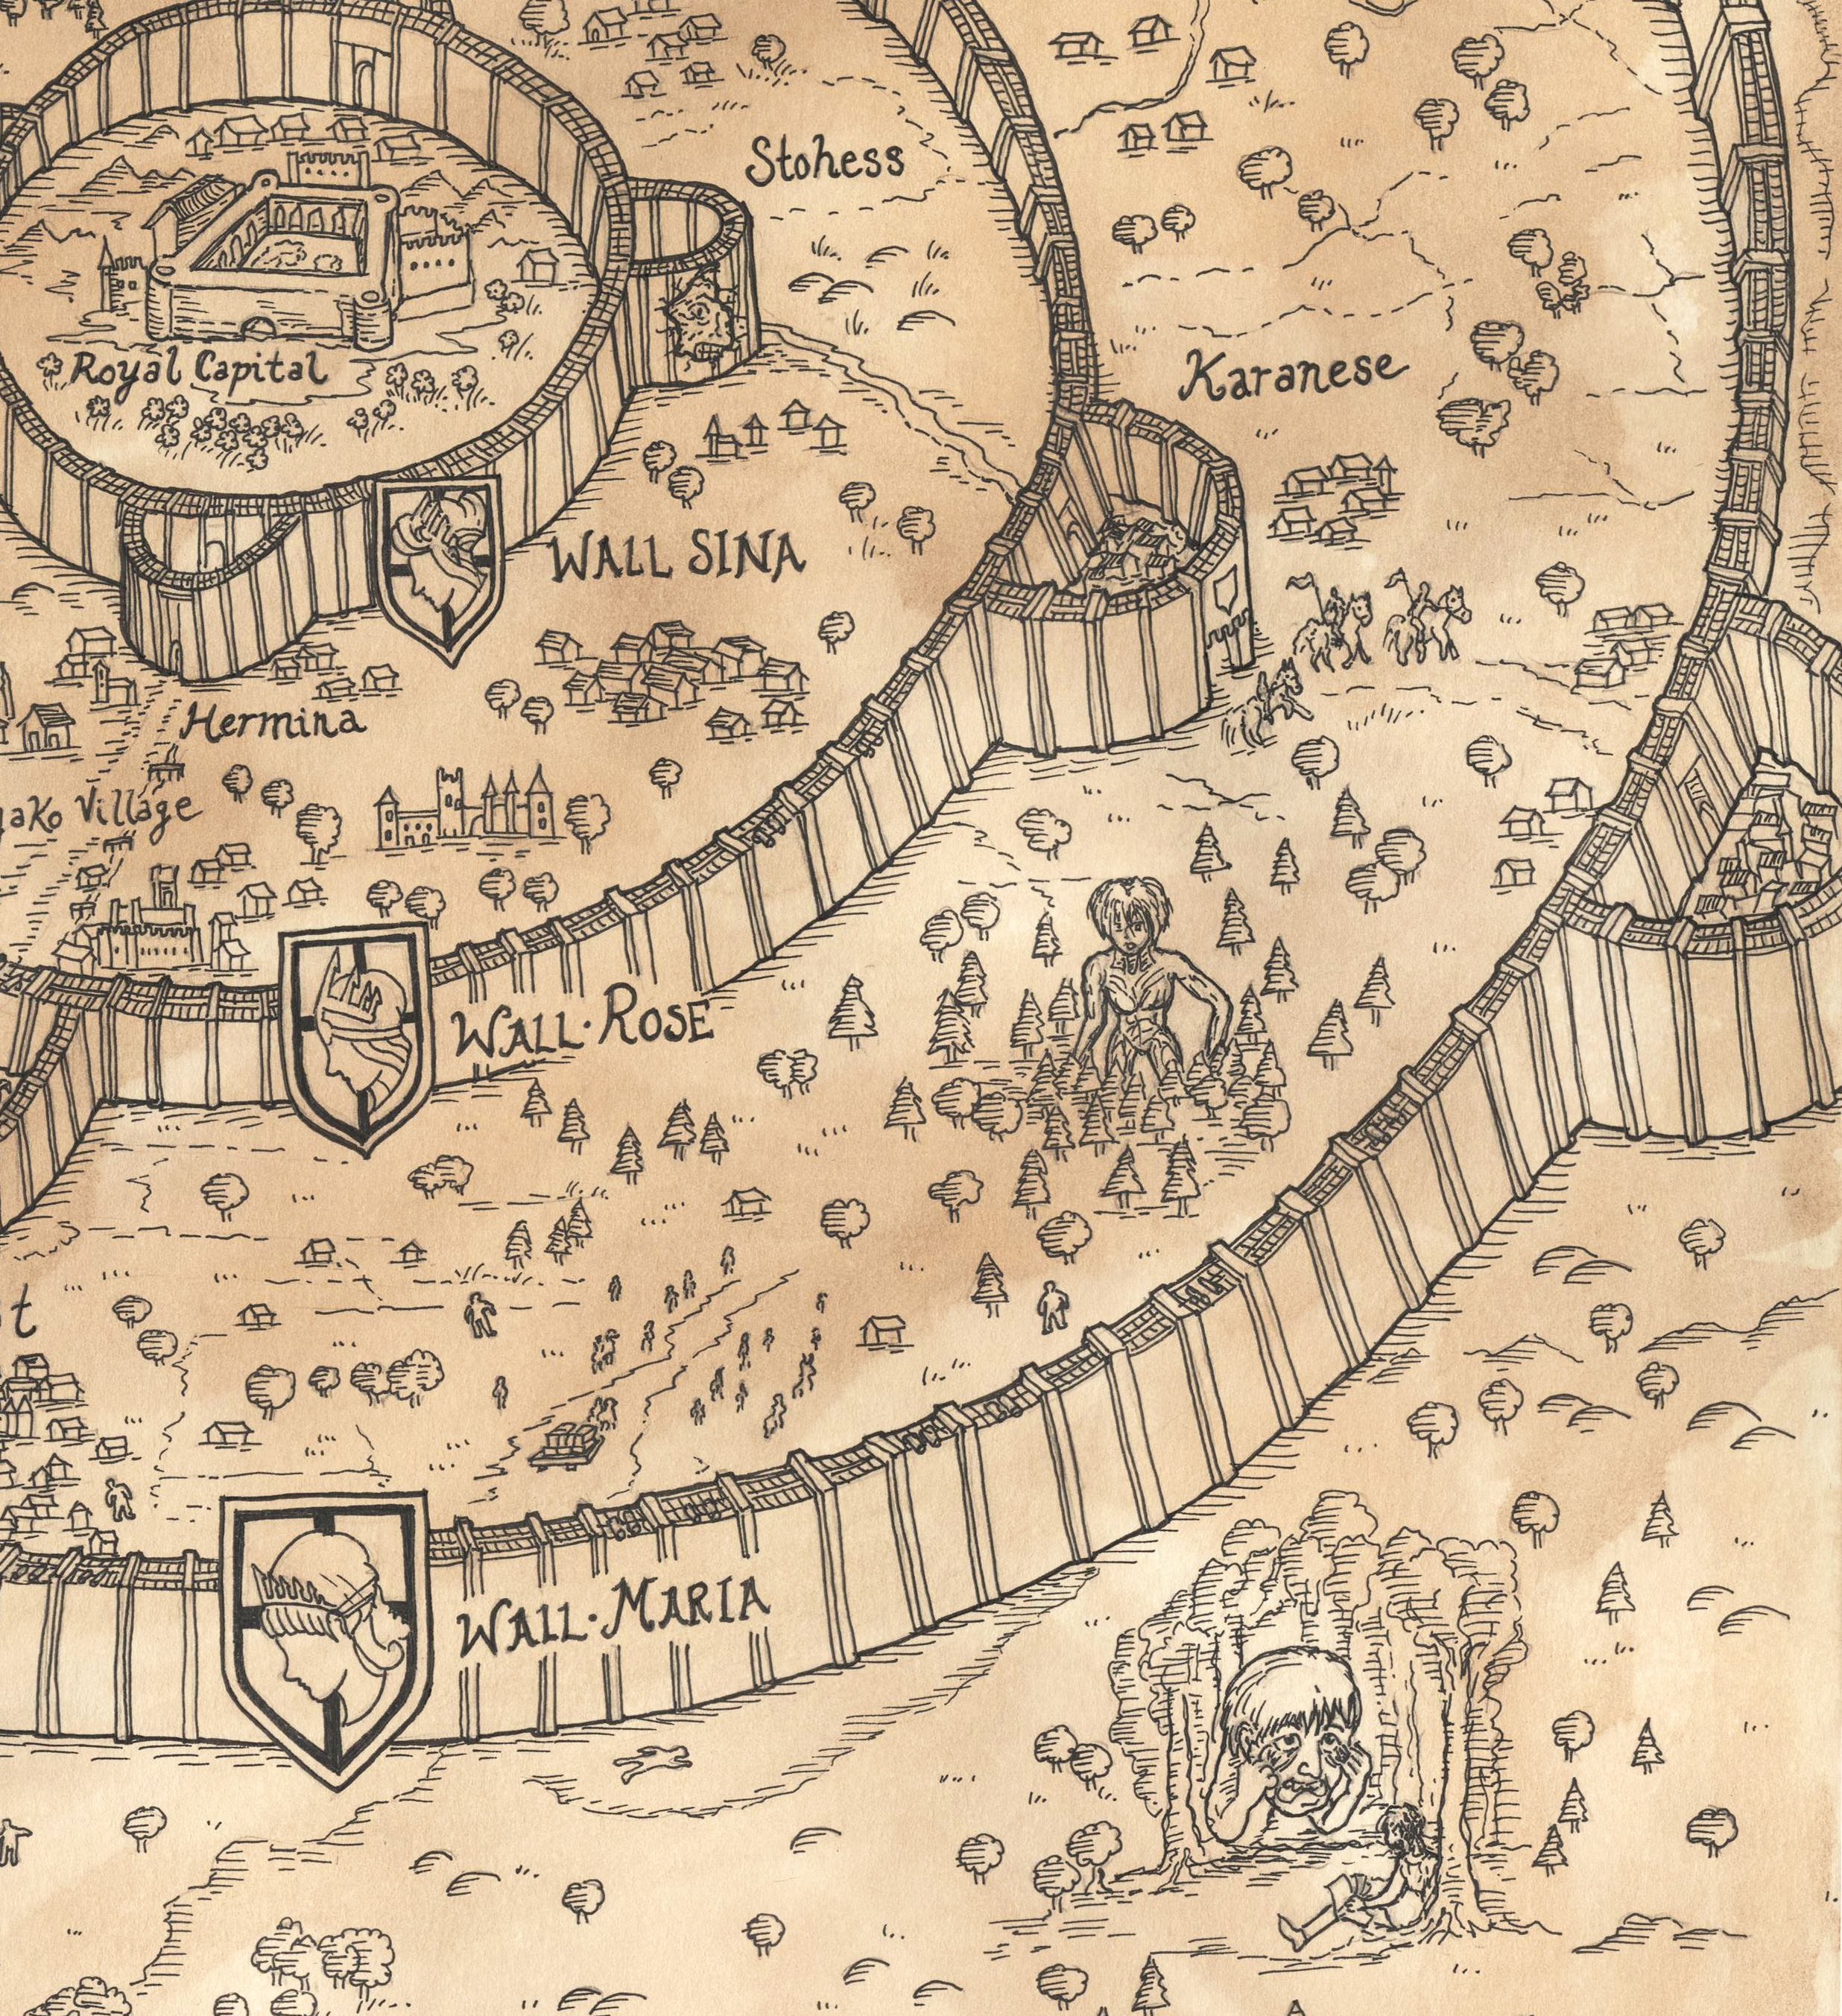 Stohess
Royal Capital
Karanese
WALL SINA
Hermina
Village
WALL·ROSE
WALL·MARIA